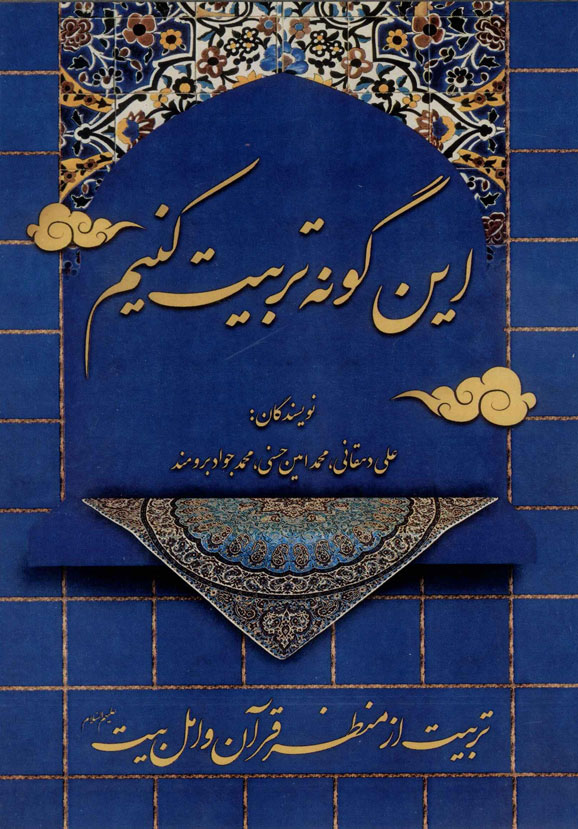 این گونه تربیت کنیم
نویسندگان:
علی دهقانی، محمد امین حسنی، محمد جواد برومند
تربیت از منظر قرآن و اهل بیت علیهم السلام